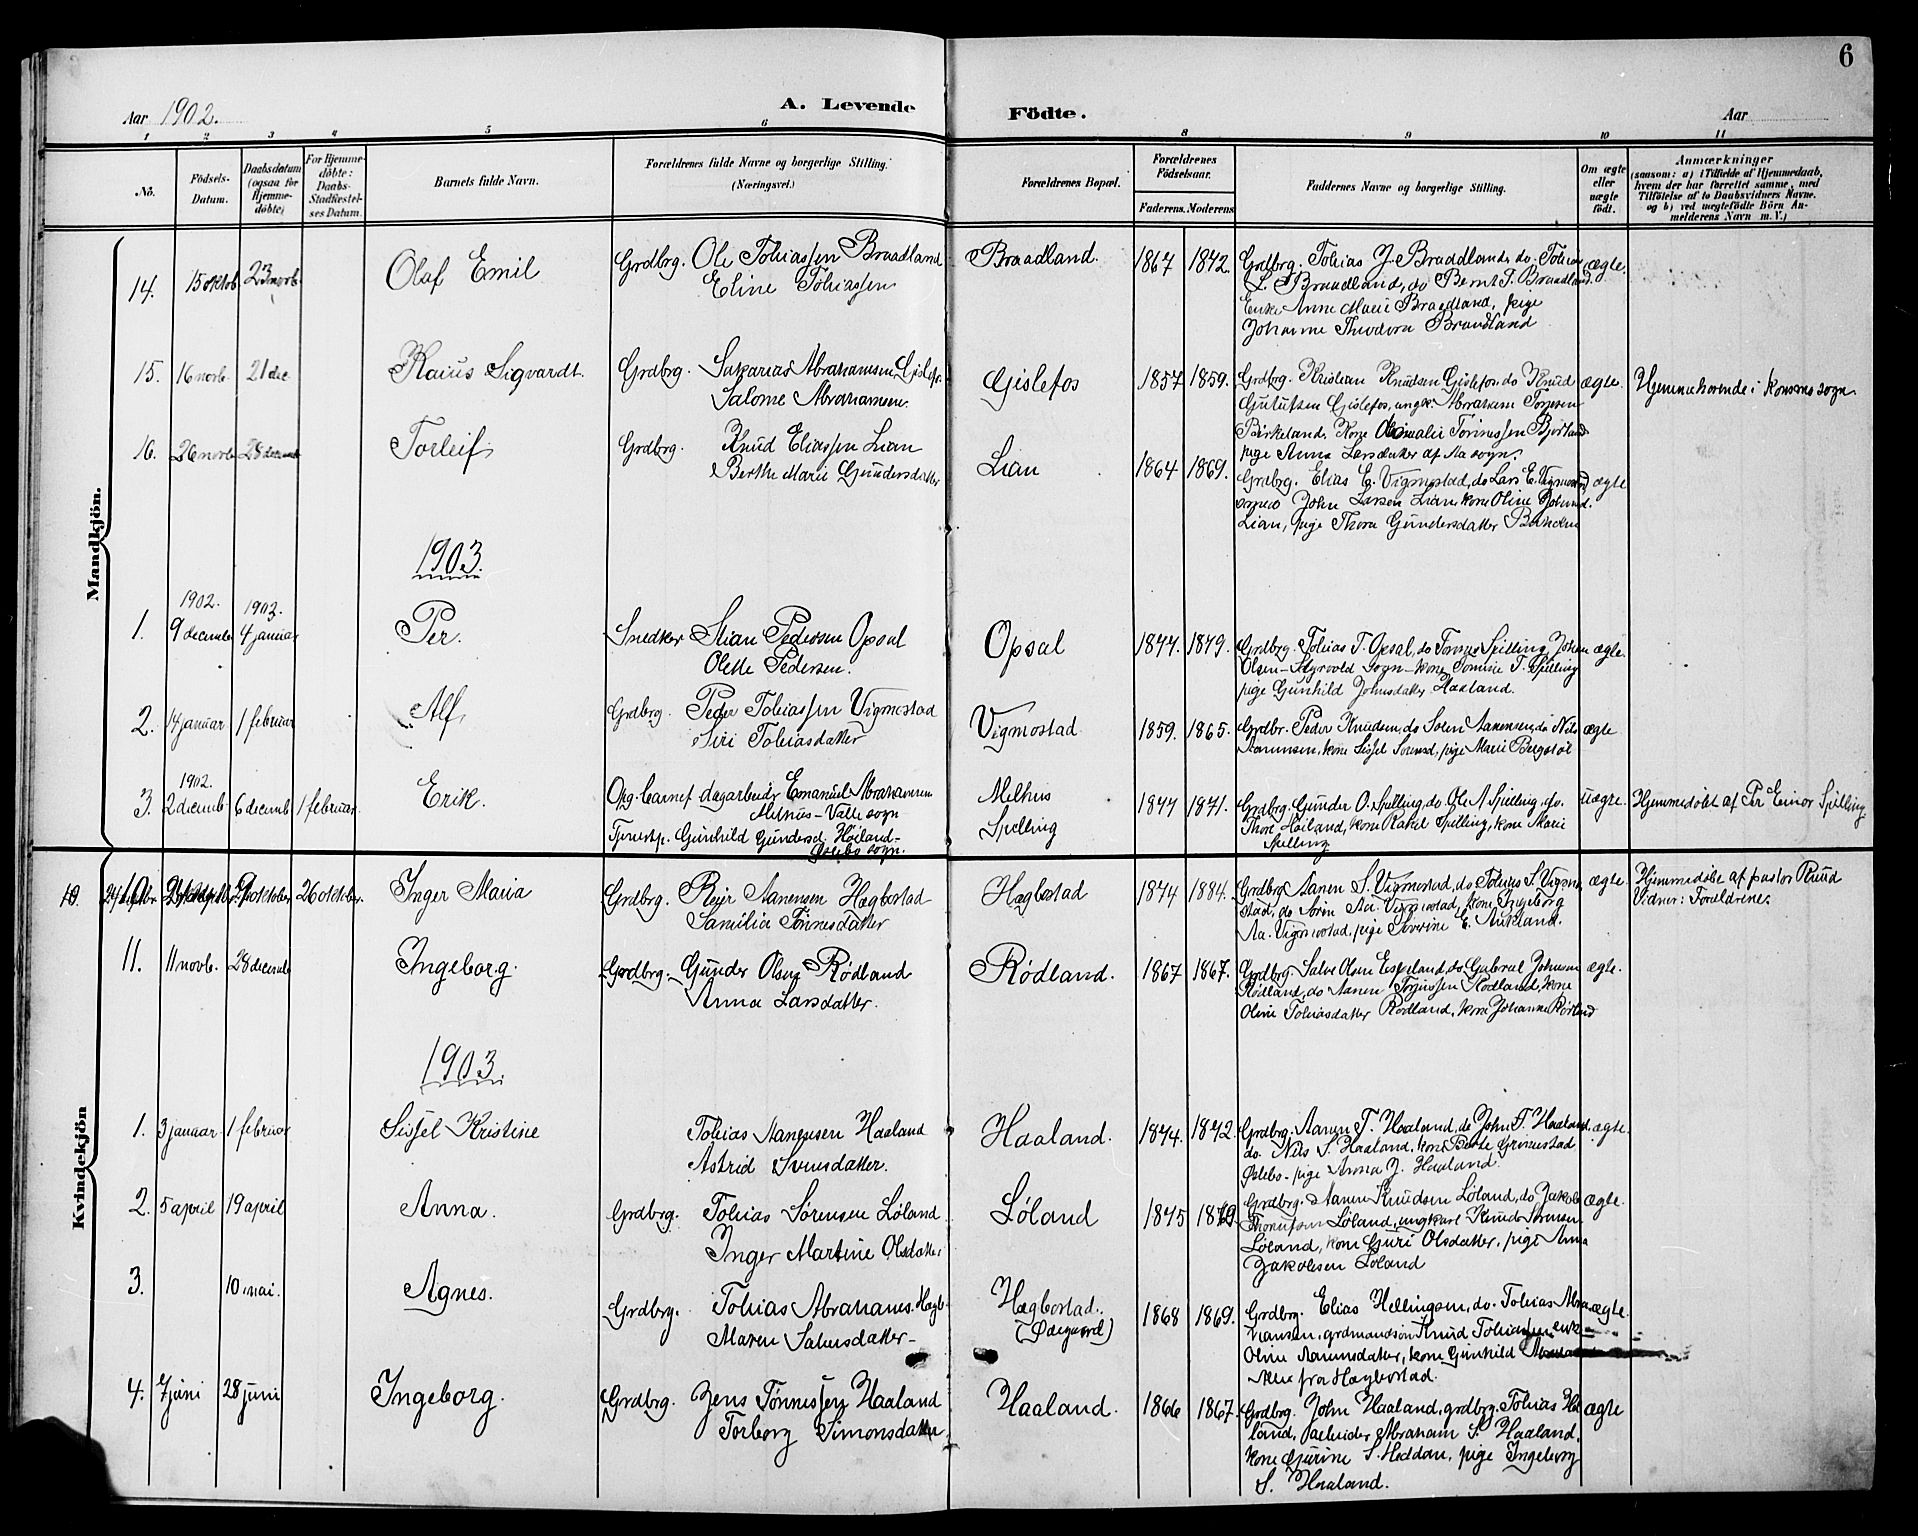 6
Aar 1902. A. Levende Födte. Aar
1 2 3 4 5 6 8 9 10 11
No. Födsels-Datum. Daabsdatum (ogsaa for Hjemme-döbte) For Hjemme-döbte: Daabs-Stadfæstel-ses Datum. Barnets fulde Navn. Forældrenes fulde Navne og borgerlige Stilling. (Næringsvei.) Forældrenes Bopæl. Forældrenes Födselsaar. Faderens. Moderens Faddernes Navne og borgerlige Stilling. Om ægte eller uægte födt. Anmærkninger
(saasom: a) i Tilfælde af Hjemmedaab, hvem der har forrettet samme, med Tilföielse af to Daabsvidners Navne. og b) ved uægtefödte Börn An-melderens Navn m. V.)
Mandkjön.
14. 15 oktob. 23 novb. Olaf Emil Grdbrg. Ole Tobiassen Braadland Braadland. 1867 1872. Grdbrg. Tobias J. Braadland, do. Tobias ægte.
Eline Tobiassen
Braadland, do Bernt T. Braadland
Enke Anne Marie Braadland, pige
Johanne Theodora Braadland
15. 16 novb. 21 dec Kaius Sigvardt. Grdbrg. Sakarias Abrahamsen Gislefos 1857 1859. Grdbrg. Kristian Knudsen Gislefos, do Knud ægte. Hjemmehørende i Konsmo sogn.
Salome Abrahamsen.
Gislefos, ungk. Abraham
Birkeland, Kone Tønnessen
pige Anna Larsdatter af Aa sogn.
16. 26 novb 28 decemb Torleif Grdbrg. Knud Eliassen Lian Lian 1864 1869. Grdbrg. Elias E. Vigmostad, do Lars E. Vigmostad ægte
Berthe Marie Gundersdatter
John Larsen Lian, kone Oline
Lian, pige Thora Gundersdatter
1903.
1902. 1903.
1. 9 decemb 4 januar Per. Snedker Stian Pedersen Opsal Opsal 1877. 1879. Grdbrg. Tobias T. Opsal, do Tønnes Spilling, Johan ægte.
Olette Pedersen.
Olsen – sogn – kone Tomine T. Spilling
pige Gunhild Johnsdatter Haaland.
2. 14 januar 1 februar Alf. Grdbrg. Peder Tobiassen Vigmostad Vigmostad 1859. 1865. Grdbr. Peder Knudsen, do Soren Aanensen, do Nils ægte
Siri Tobiasdatter
kone Sissel pige Marie
1902.
3. 2 decemb 6 decemb 1 februar. Erik. dagarbeider Emanuel Abrahamsen Melhus 1877 1871. Grdbrg. Gunder O. Spilling, do. Ole A Spilling, do. uægte. Hjemmedøbt af Per Einar Spilling.
Melhus – Valle sogn
Spilling
Thore Høiland, kone Rakel Spilling, kone Marie
Gunhild Gundersd. Høiland –
Spilling
Øslebø sogn.
Kvindekjön
10. 26 oktober. Inger Maria Grdbrg. Reier Aanensen Hægbostad Hægbostad 1874 1884. Grdbrg Aanen S. Vigmostad, do Tobias S. Vigmo- ægte. Hjemmedøbt af pastor Ruud
Samilia Tønnesdatter
stad, do Søren Aa. Vigmostad, kone Ingeborg
Vidner: Forældrene.
Aa. Vigmostad, pige Severine E.
11. 11 novb. 28 decemb Ingeborg. Grdbrg. Gunder Olsen Rødland Rødland. 1867 1867. Grdbrg. Salve Olsen do. Gabriel Johnsen ægte.
Anna Larsdatter.
Rødland, do Aanen Rødland, kone
Oline Tobiasdatter Rødland, kone Johanne Rødland
1903.
1. 3 januar 1 februar Sissel Kristine Tobias Aanensen Haaland Haaland. 1874. 1872. Grdbrg. Aanen T. Haaland, do John T. Haaland. ægte.
Astrid Svensdatter.
do. Nils S. Haaland, kone Berte
Øslebø – pige Anna J. Haaland.
2. 5 april 19 april Anna. Grdbrg. Tobias Sørensen Løland Løland 1875 Grdbrg. Aanen Knudsen Løland, do Jakob ægte.
Inger Martine Olsdatter
Løland, ungkarl Knud Sørensen
Løland, kone Guri Olsdatter, pige Anna
Jakobsen Løland
3. 10 mai. Agnes. Grdbrg. Tobias Abrahams. Hægb. Hægbostad. 1868 1869. Grdbrg. Elias Hellingsen, do. Tobias Abra- ægte.
Maren Salvesdatter –
(Ødegaard)
hansen, grdmandsøn Knud Tobiassen, enke
Oline Aanensdatter, kone Gunhild
Alle fra Hægbostad.
4. 7 juni 28 juni Ingeborg. Grdbrg. Jens Tønnessen Haaland Haaland. 1866 1867. Grdbrg. John Haaland, grdbrg. Tobias Haa- ægte
Torborg Simonsdatter
land, Abraham S. Haaland.
kone Gurine S. Heddan, pige Ingeborg
S. Haaland.